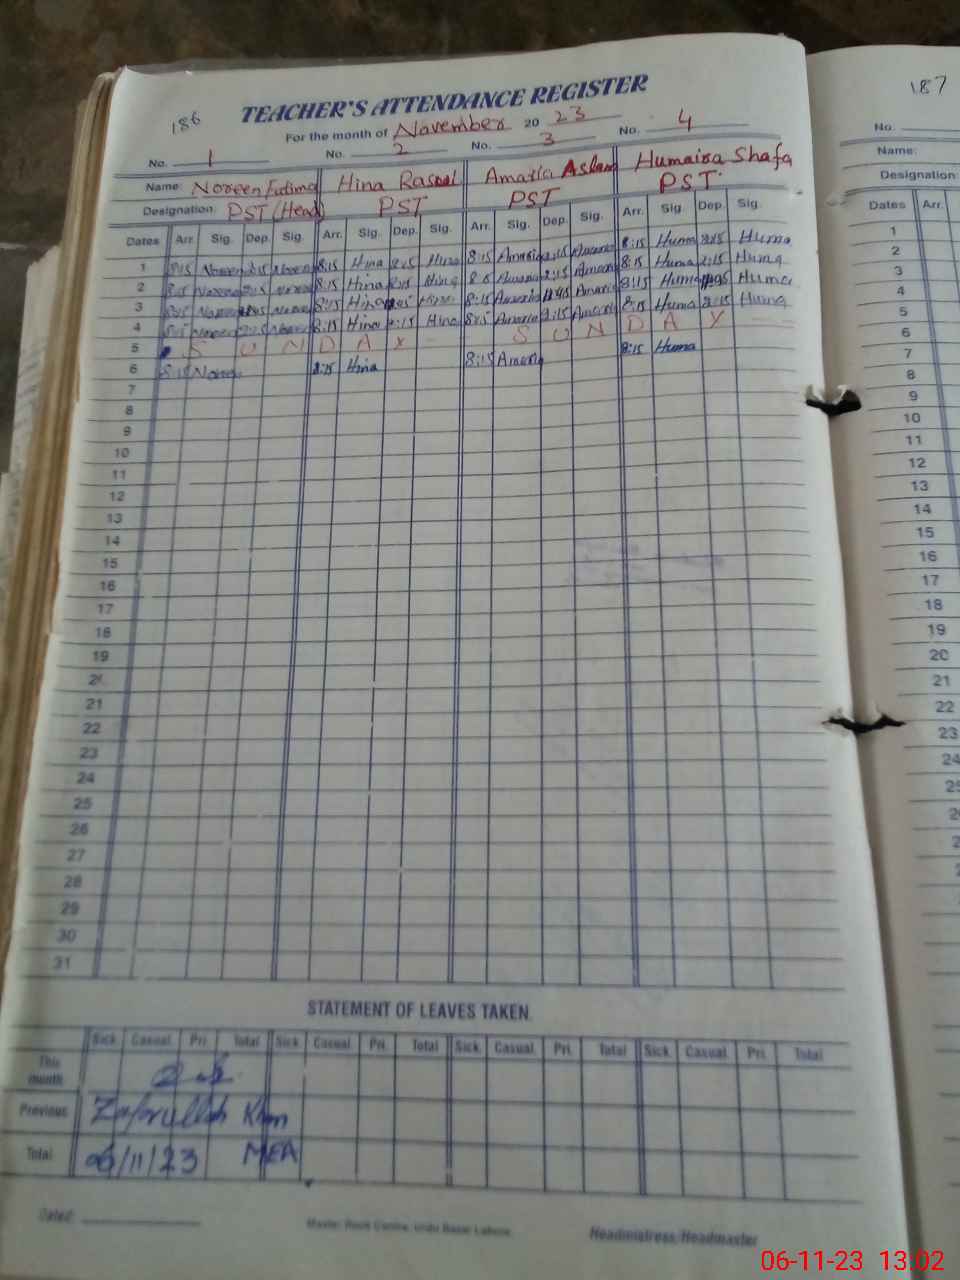 186
TEACHER'S ATTENDANCE REGISTER
For the month of November 20 23
No. 1 No. 2 No. 3 No. 4
Name: Noreen Fatima Hina Rasool Aslam Humaira Shafa
Designation: PST (Head) PST PST PST
Dates Arr. Sig. Dep. Sig. Arr. Sig. Dep. Sig. Arr. Sig. Dep. Sig. Arr. Sig. Dep. Sig.
1 8:15 Noreen 2:15 Noreen 8:15 Hina 2:15 Hina 8:15 2:15 8:15 Huma 2:15 Huma
2 8:15 Noreen 2:15 Noreen 8:15 Hina 2:15 Hina 8:15 2:15 8:15 Huma 2:15 Huma
3 8:15 Noreen Noreen 8:15 Hina Hina 8:15 8:15 Huma Huma
4 8:15 Noreen 2:15 Noreen 8:15 Hina 2:15 Hina 8:15 2:15 8:15 Huma 2:15 Huma
5 S U N D A Y S U N D A Y
6 8:15 8:15 Hina 8:15 8:15 Huma
7
8
9
10
11
12
13
14
15
16
17
18
19
20
21
22
23
24
25
26
27
28
29
30
31
STATEMENT OF LEAVES TAKEN
Sick Casual Pri. Total Sick. Casual Pri. Total Sick. Casual Pri. Total Sick. Casual Pri. Total
This month
Previous Zafarullah Khan
Total 06/11/23 MEA
Dated:
Master Book Centre, Urdu Bazar Lahore
Headmistress/Headmaster
187
No.
Name:
Designation
Dates Arr.
1
2
3
4
5
6
7
8
9
10
11
12
13
14
15
16
17
18
19
20
21
22
23
24
06-11-23 13:02